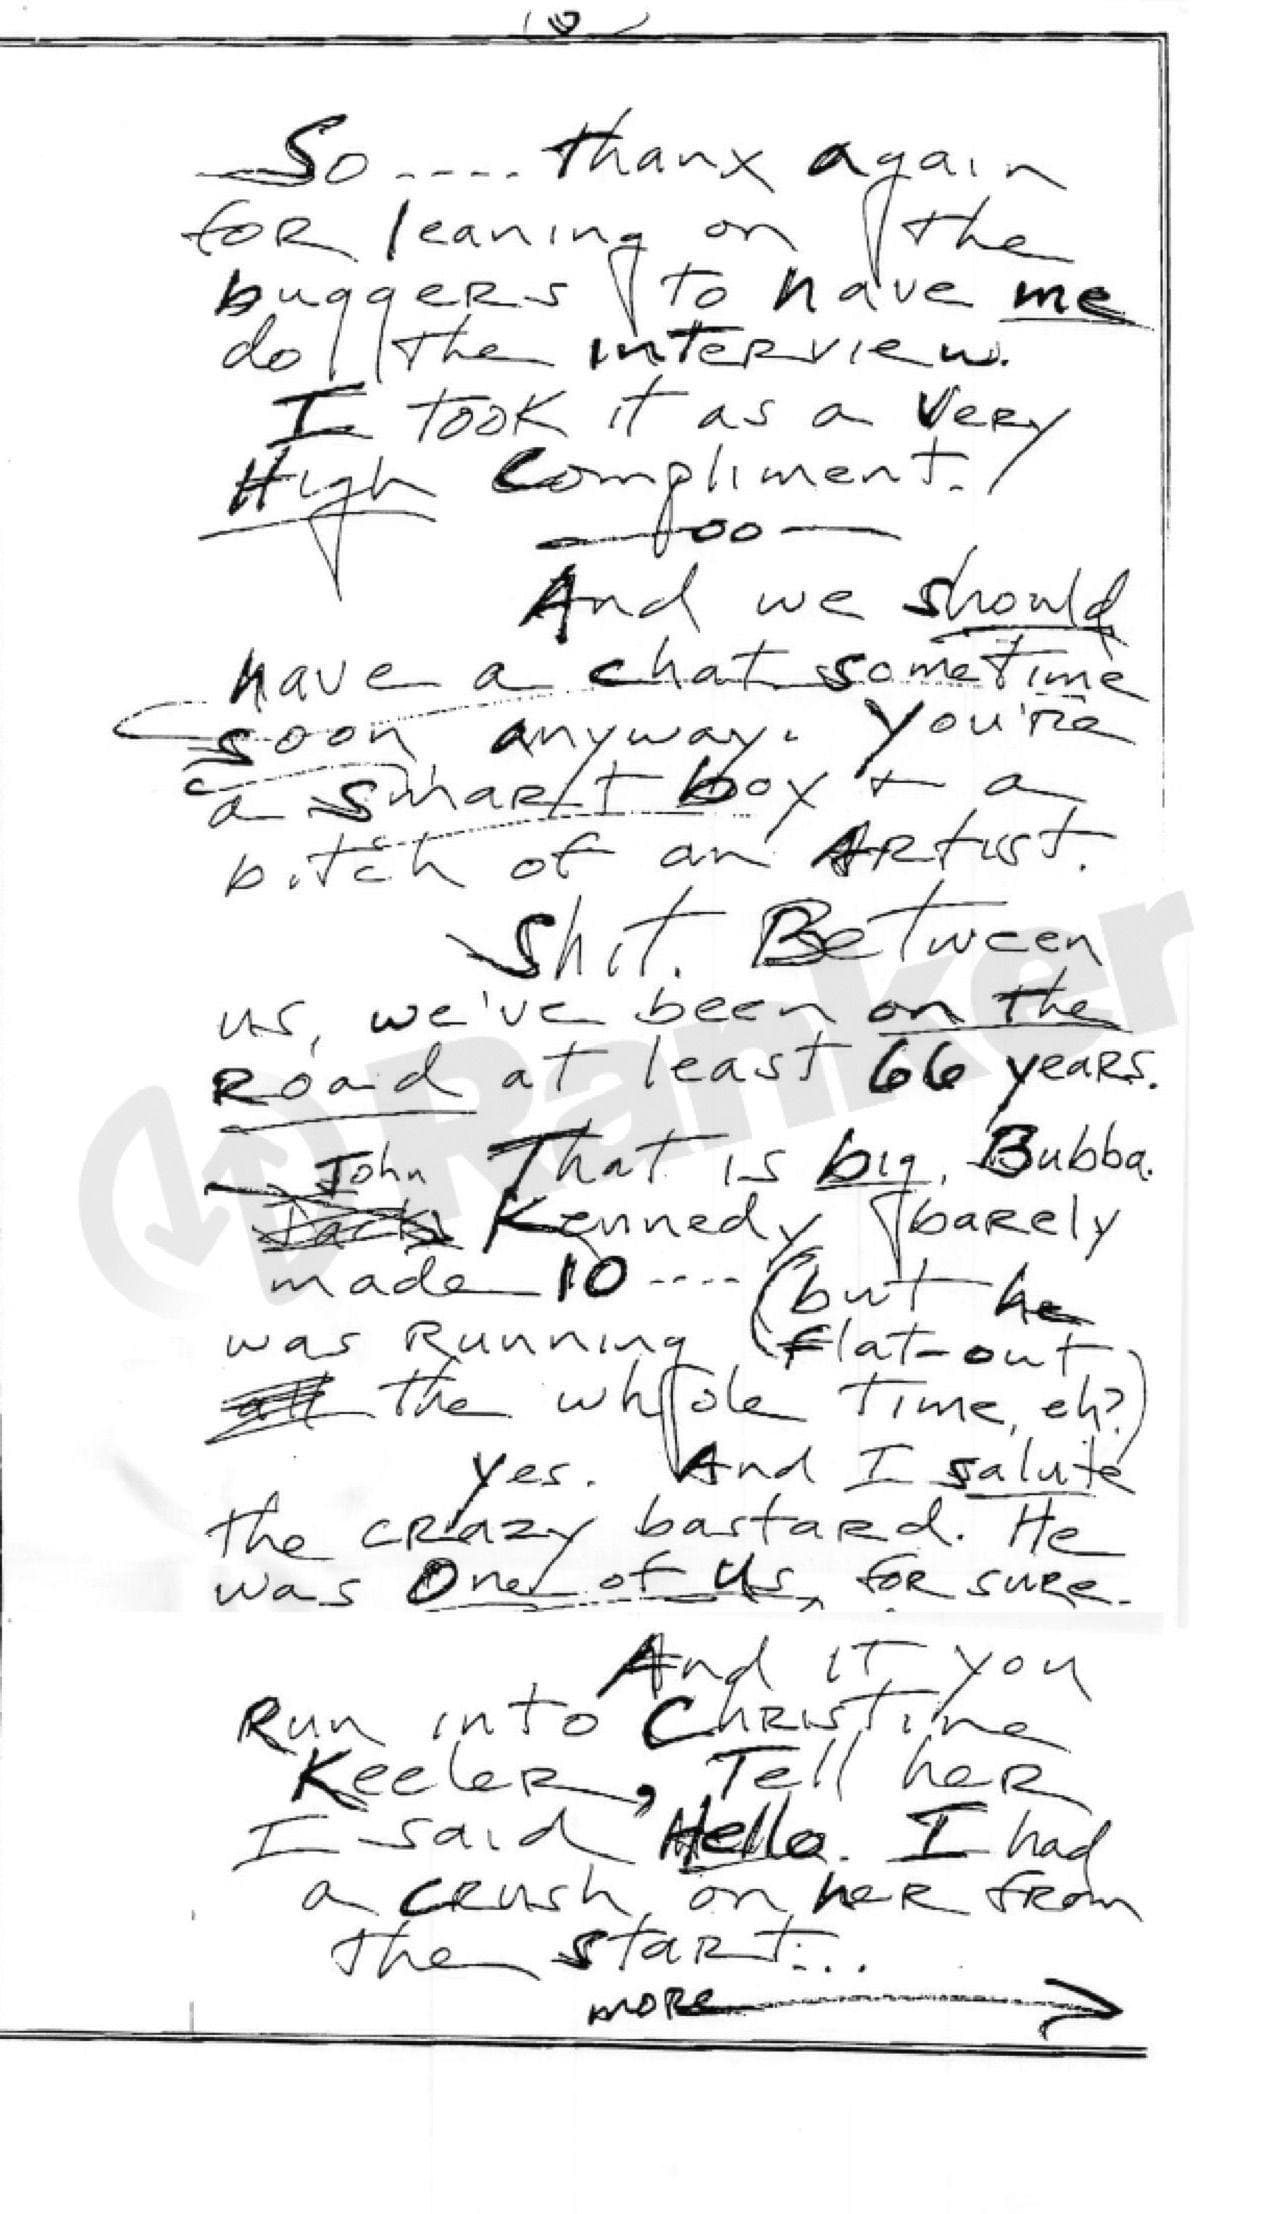 So .... thanx again
for leaning on the
buggers to have me
do the interview.
I took it as a very
High Compliment.
—oo—
And we should
have a chat sometime
soon anyway. You're
a smart boy + a
bitch of an Artist.
Shit. Between
us, we've been on the
Road at least 66 years.
That is big, Bubba.
John
Jack Kennedy barely
made 10 .... (but he
was Running flat-out
all the whole time, eh?)
Yes. And I salute
the crazy bastard. He
was One of us, for sure.
And if you
Run into Christine
Keeler, Tell her
I said Hello. I had
a crush on her from
the start...
more
Ranker